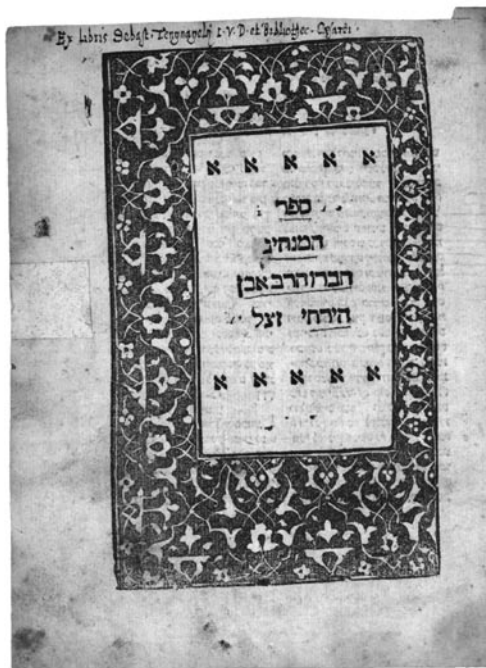 Ex libris Sebast. Tengnagelij I. V. D. et Bibliothec. Cæsarei.
א א א א א
ספר
המנהיג
חברו הרב אבן
הירחי זצל
א א א א א